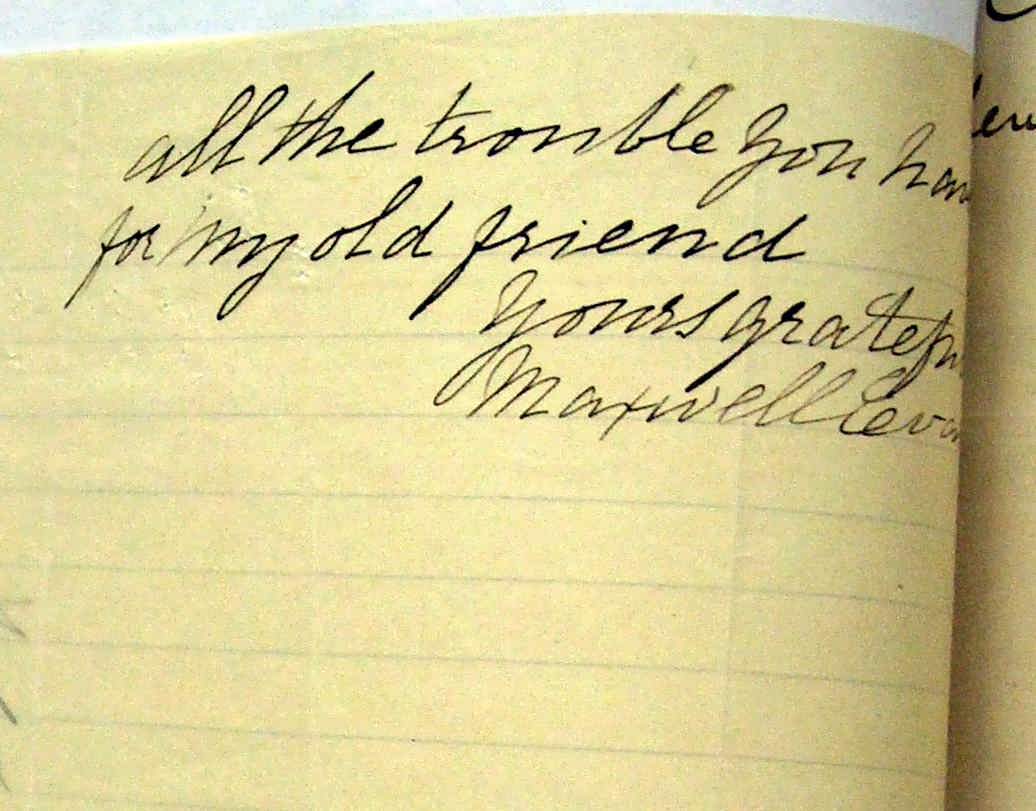 all the trouble you hav
for my old friend
Yours gratefu
Maxwell Eva